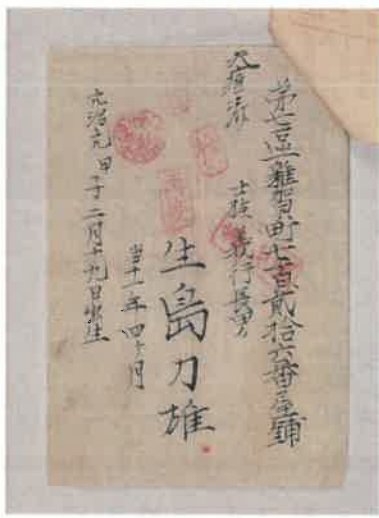 第七區雜賀町七百貳拾六番屋鋪
士族 義行長男
生島力雄
当十一年四ヶ月
元治元甲子二月十九日出生